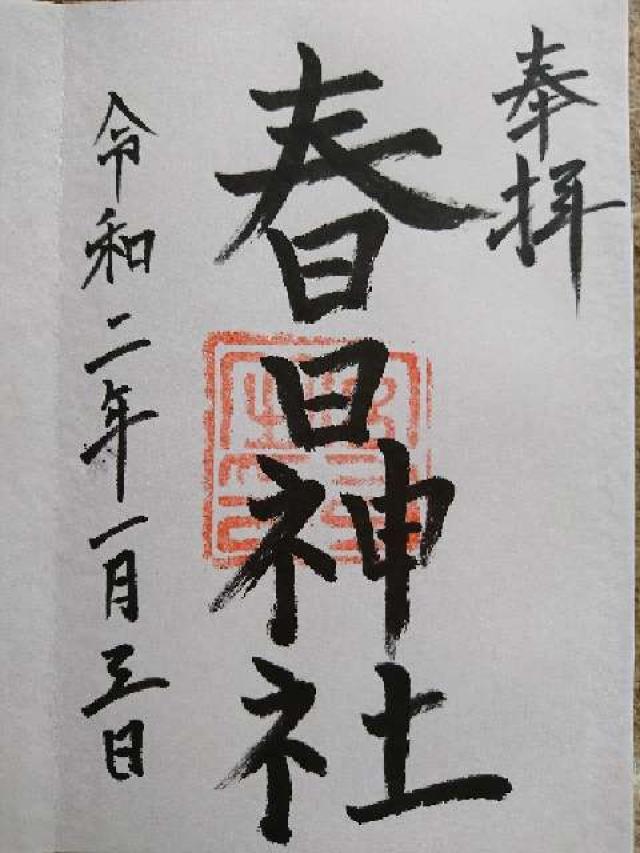 奉拝
春日神社
令和二年一月三日